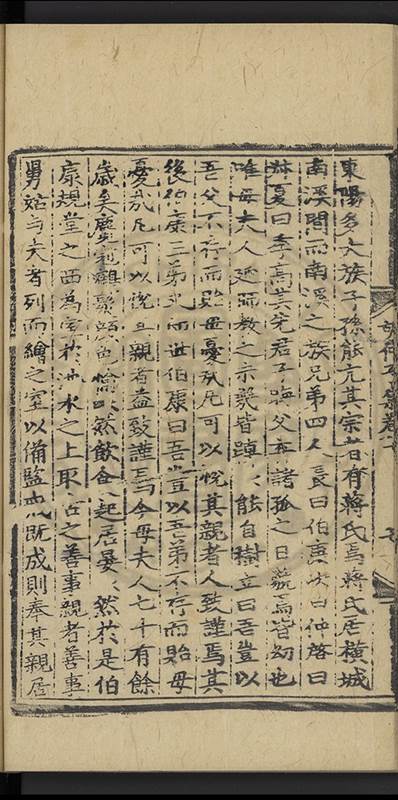 東陽多大族子孫能亢其宗者有蔣氏焉蔣氏居橫城
南溪間而南溪之族兄弟四人長曰伯康次曰仲啓曰
叔夏曰季高其先君子晦父在諸孤之日藐焉皆幼也
唯母夫人延師教之示幾皆踔〻能自樹立曰吾豈以
吾父不存而貽母憂夙凡可以悅其親者人致謹焉其
後伯康三弟先而逝伯康曰吾豈以吾弟不存而貽母
憂夙凡可以悅吾親者益致謹焉今母夫人七十有餘
歲矣鬢顏色愉〻然飲食起居晏〻然於是伯
康規堂之西為室於沜水之上取古之善事親者善事
舅姑与夫者列而繪之室以備監焉既成則奉其親居